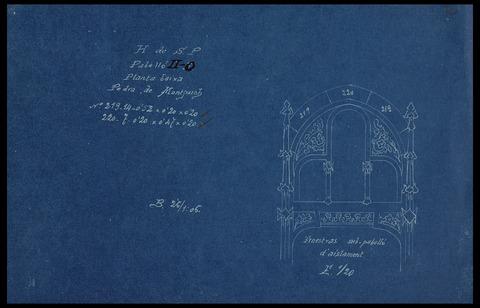 H de S P
Pabelló II-O
Planta baixa
Pedra de Montjuich
Nº 219. 14. 0'52 x 0'20 x 0'20
220. 7. 0'20 x 0'47 x 0'20
219 220 219
B. 26/1-06.
Finestras sub-pabelló
d'aislament
E. 1/20